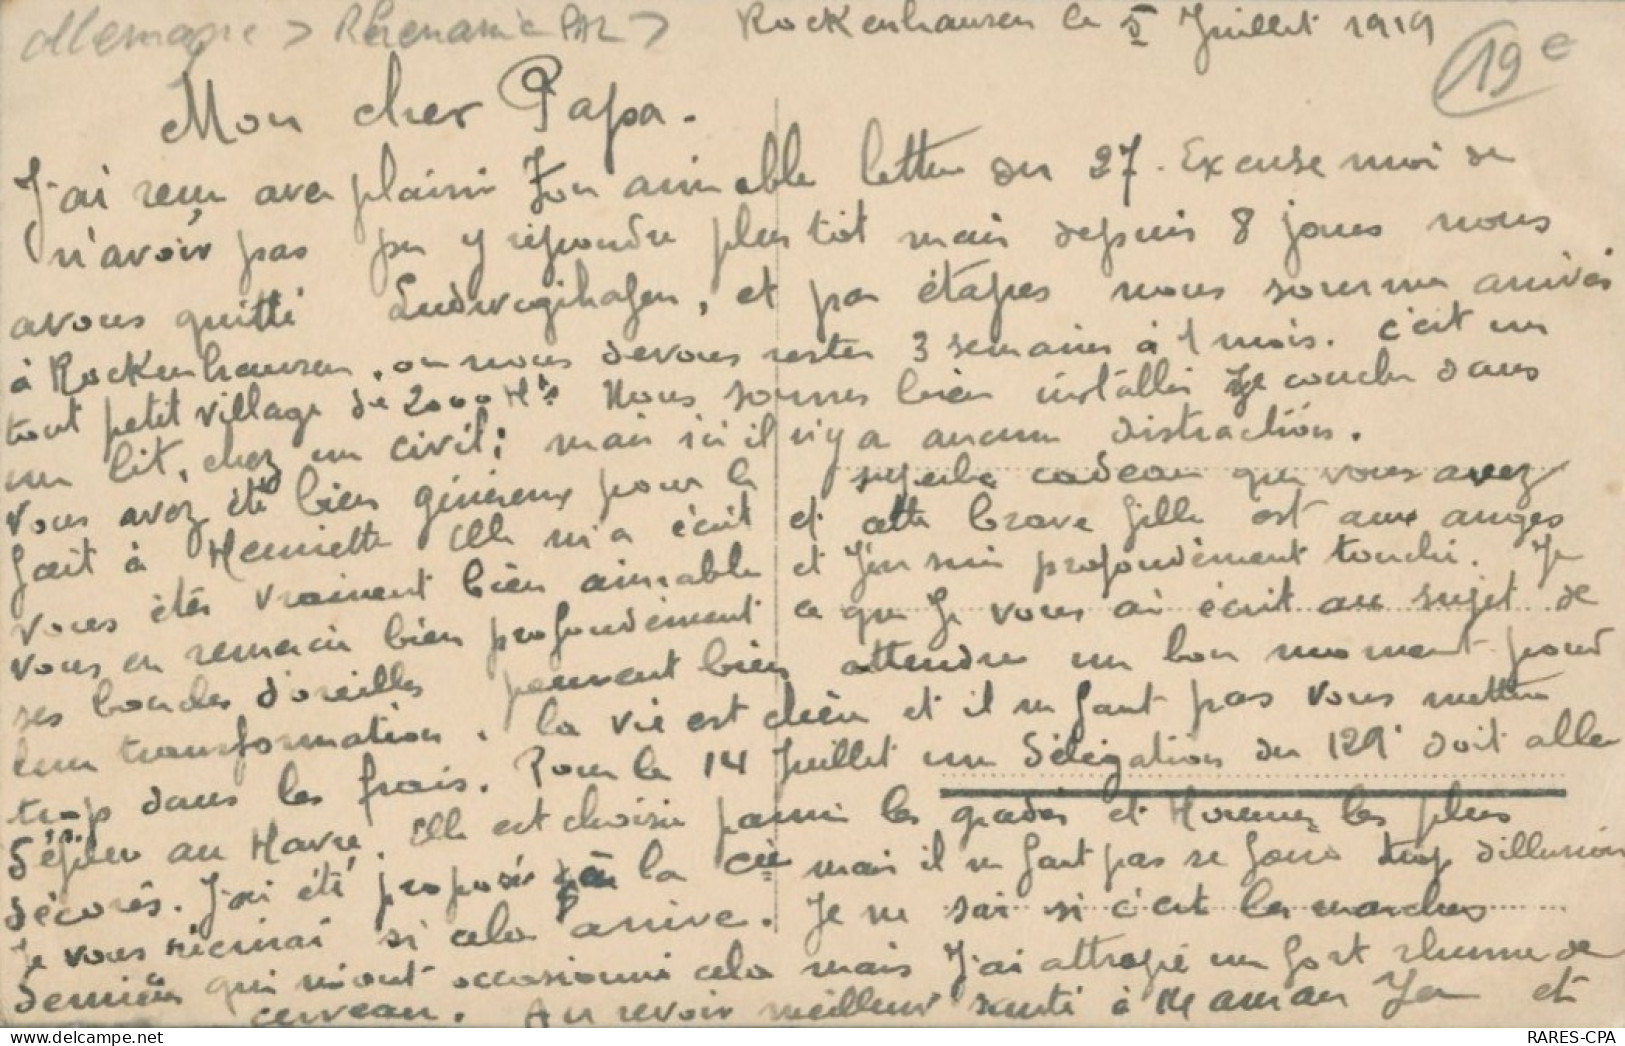 Allemagne > Rhénanie PAL >
Rockenhausen le 5 Juillet 1919
19 e
Mon cher Papa.
J'ai reçu avec plaisir ton aimable lettre du 27. Excuse moi de
n'avoir pas pu y répondre plus tôt mais depuis 8 jours nous
avons quitté Ludwigshafen, et par étapes nous sommes arrivés
à Rockenhausen, ou nous devons rester 3 semaines à 1 mois. C'est un
tout petit village de 2000 Hts Nous sommes bien installés Je couche dans
un lit, chez un civil; mais ici il n'y a aucune distraction.
Vous avez été bien généreux pour le superbe cadeau que vous avez
fait à Henriette Elle m'a écrit et cette brave fille est aux anges
Vous êtes vraiment bien aimable et J'en suis profondément touché. Je
vous en remercie bien profondément ce que Je vous ai écrit au sujet de
ses boucles d'oreilles peuvent bien attendre un bon moment pour
leur transformation. La vie est chère et il ne faut pas vous mettre
trop dans les frais. Pour le 14 Juillet une Délégation du 129e doit aller
défiler au Havre. Elle est choisie parmi les gradés et Hommes les plus
décorés. J'ai été proposé à la Cie mais il ne faut pas se faire trop d'illusion
Je vous écrirai si cela arrive. Je ne sais si c'est les marches
dernières qui m'ont occasionné cela mais J'ai attrapé un fort rhume de
cerveau. Au revoir meilleur santé à Maman et
RARES-CPA